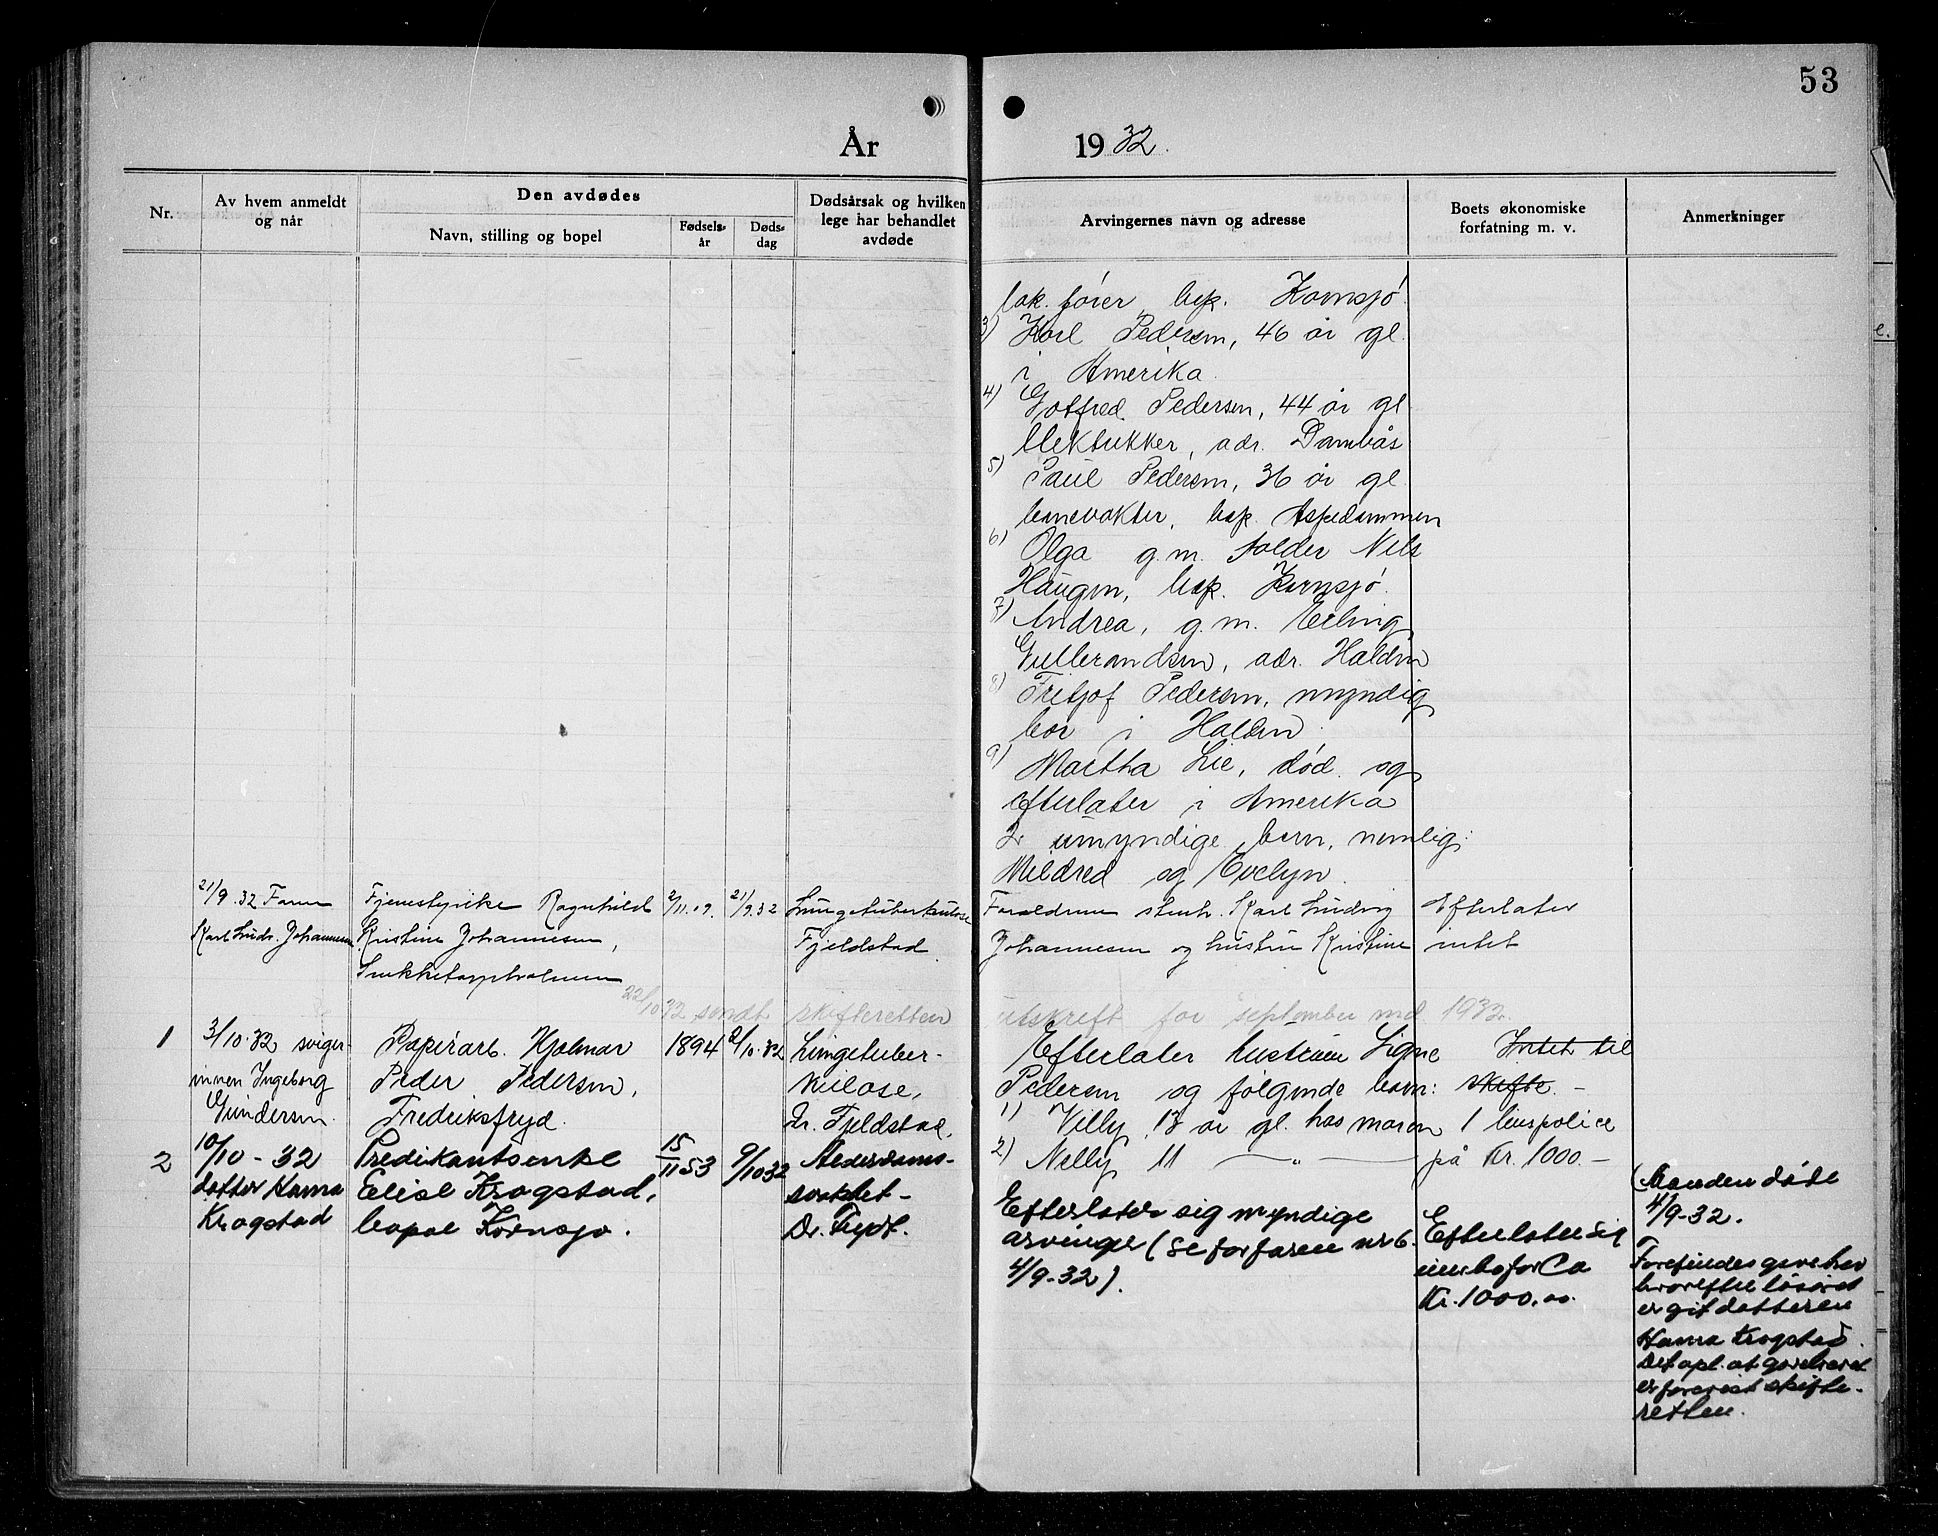 53
År 1932.
Nr.
Av hvem anmeldt
og når
Den avdødes
Navn, stilling og bopel
Fødsels-
år
Døds-
dag
Dødsårsak og hvilken
lege har behandlet
avdøde
Arvingernes navn og adresse
Boets økonomiske
forfatning m. v.
Anmerkninger
lok. fører, bop. Kornsjø.
3) Karl Pedersen, 46 år gl.
i Amerika.
4) Gotfred Pedersen, 44 år gl
adr. Dombås
5) Paul Pedersen, 36 år gl.
banevokter, bop. Aspedammen
6) Olga g.m. tolder Nils
Haugen, bop. Kornsjø.
7) Andrea, g.m. Erling
Gulbrandsen, adr. Halden
8) Fritjof Pedersen, myndig
bor i Halden.
9) Martha Lie, død og
efterlater i Amerika
2 umyndige barn, nemlig:
Mildred og Evelyn.
21/9.32 Faren
Karl Ludv. Johannesen
Tjenestepike Ragnhild
Kristine Johannesen,
2/11.09.
21/9.32
Lungetuberkulose
Fjeldstad.
Foreldrene stenh. Karl Ludvig
Johannesen og hustru Kristine
Efterlater
intet
22/10 32 sendt skifteretten utskrift for september md 1932.
1
3/10.32 sviger-
innen Ingeborg
Gundersen.
Papirarb. Hjalmar
Peder Pedersen,
Fredriksfryd.
1894
2/10.32
Lungetuber-
kulose,
Dr. Fjeldstad.
Efterlater hustruen Signe
Pedersen og følgende barn:
1) Villy, 13 år gl. hos moren
2) Nelly 11 — „ —
Intet til
skifte. -
1 livspolice
på Kr. 1000.-
2
10/10 - 32
datter Hanna
Krogstad
Predikantsenke
Elise Krogstad,
bopæl Kornsjø.
15/11 53
9/10 32
Alderdoms-
svakhet -
Dr.
Efterlater sig myndige
arvinger (se forfaren nr 6.
4/9-32).
Efterlater sig
innbo for Ca
Kr. 1000.00.
(Manden døde
4/9-32.
Forefindes gavebrev
hvorefter løsøret
er git datteren
Hanna Krogstad.
Det opl. at gavebrevet
er forevist skifte-
retten.